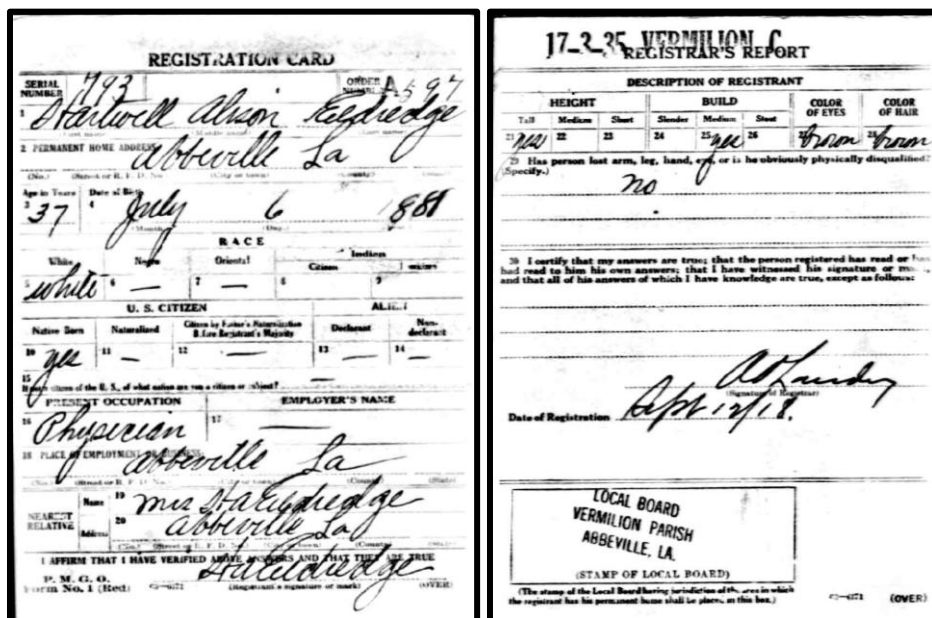 REGISTRATION CARD
SERIAL NUMBER 793 ORDER NUMBER A597
1 Hartwell Alison Eldredge
(First name) (Middle name) (Last name)
2 PERMANENT HOME ADDRESS: Abbeville La
(No.) (Street or R. F. D. No.) (City or town) (County) (State)
Age in Years Date of Birth
3 37 4 July 6 1881
(Month.) (Day.)
RACE
White Negro Oriental Indian
Citizen
5 white 6 — 7 — 8 9
U. S. CITIZEN ALIEN
Native Born Naturalized Citizen by Father's Naturalization Before Registrant's Majority Declarant Non-declarant
10 yes 11 — 12 — 13 — 14 —
15 If not a citizen of the U. S., of what nation are you a citizen or subject? —
PRESENT OCCUPATION EMPLOYER'S NAME
16 Physician 17 —
18 PLACE OF EMPLOYMENT OR BUSINESS: Abbeville La
(No.) (Street or R. F. D. No.) (City or town) (County) (State)
NEAREST RELATIVE Name 19 Mrs H A Eldredge
Address 20 Abbeville La
(No.) (Street or R. F. D. No.) (City or town) (County) (State)
I AFFIRM THAT I HAVE VERIFIED ABOVE ANSWERS AND THAT THEY ARE TRUE
H A Eldredge
P. M. G. O.
Form No. 1 (Red) (Registrant's signature or mark) (OVER)
17-3-35 VERMILION C
REGISTRAR'S REPORT
DESCRIPTION OF REGISTRANT
HEIGHT BUILD COLOR OF EYES COLOR OF HAIR
Tall Medium Short Slender Medium Stout
21 yes 22 23 24 25 yes 26 27 brown 28 brown
29 Has person lost arm, leg, hand, eye, or is he obviously physically disqualified?
(Specify.) no
30 I certify that my answers are true; that the person registered has read or has
had read to him his own answers; that I have witnessed his signature or mark,
and that all of his answers of which I have knowledge are true, except as follows:
(Signature of Registrar)
Date of Registration Sept 12/18.
LOCAL BOARD
VERMILION PARISH
ABBEVILLE, LA.
(STAMP OF LOCAL BOARD)
(The stamp of the Local Board having jurisdiction of the area in which
the registrant has his permanent home shall be placed in this box.)
(OVER)